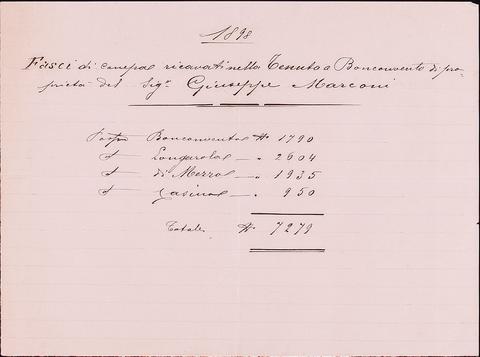 1898
Fasci di canepa ricavati nella Tenuta a Bonconvento di pro-
prietà del Sig.r Giuseppe Marconi
Bonconvento N. 1790
Longarola - " 2604
di Mezzo - " 1935
Casino - " 950
Totale N. 7279